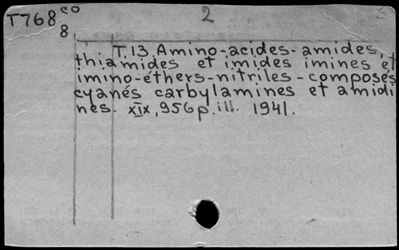 T768 co 2
8
T.13. Amino-acides-amides,
thiamides et imides imines et
imino-éthers-nitriles-composés
cyanés carbylamines et amidi
nes. XIX, 956p. ill. 1941.